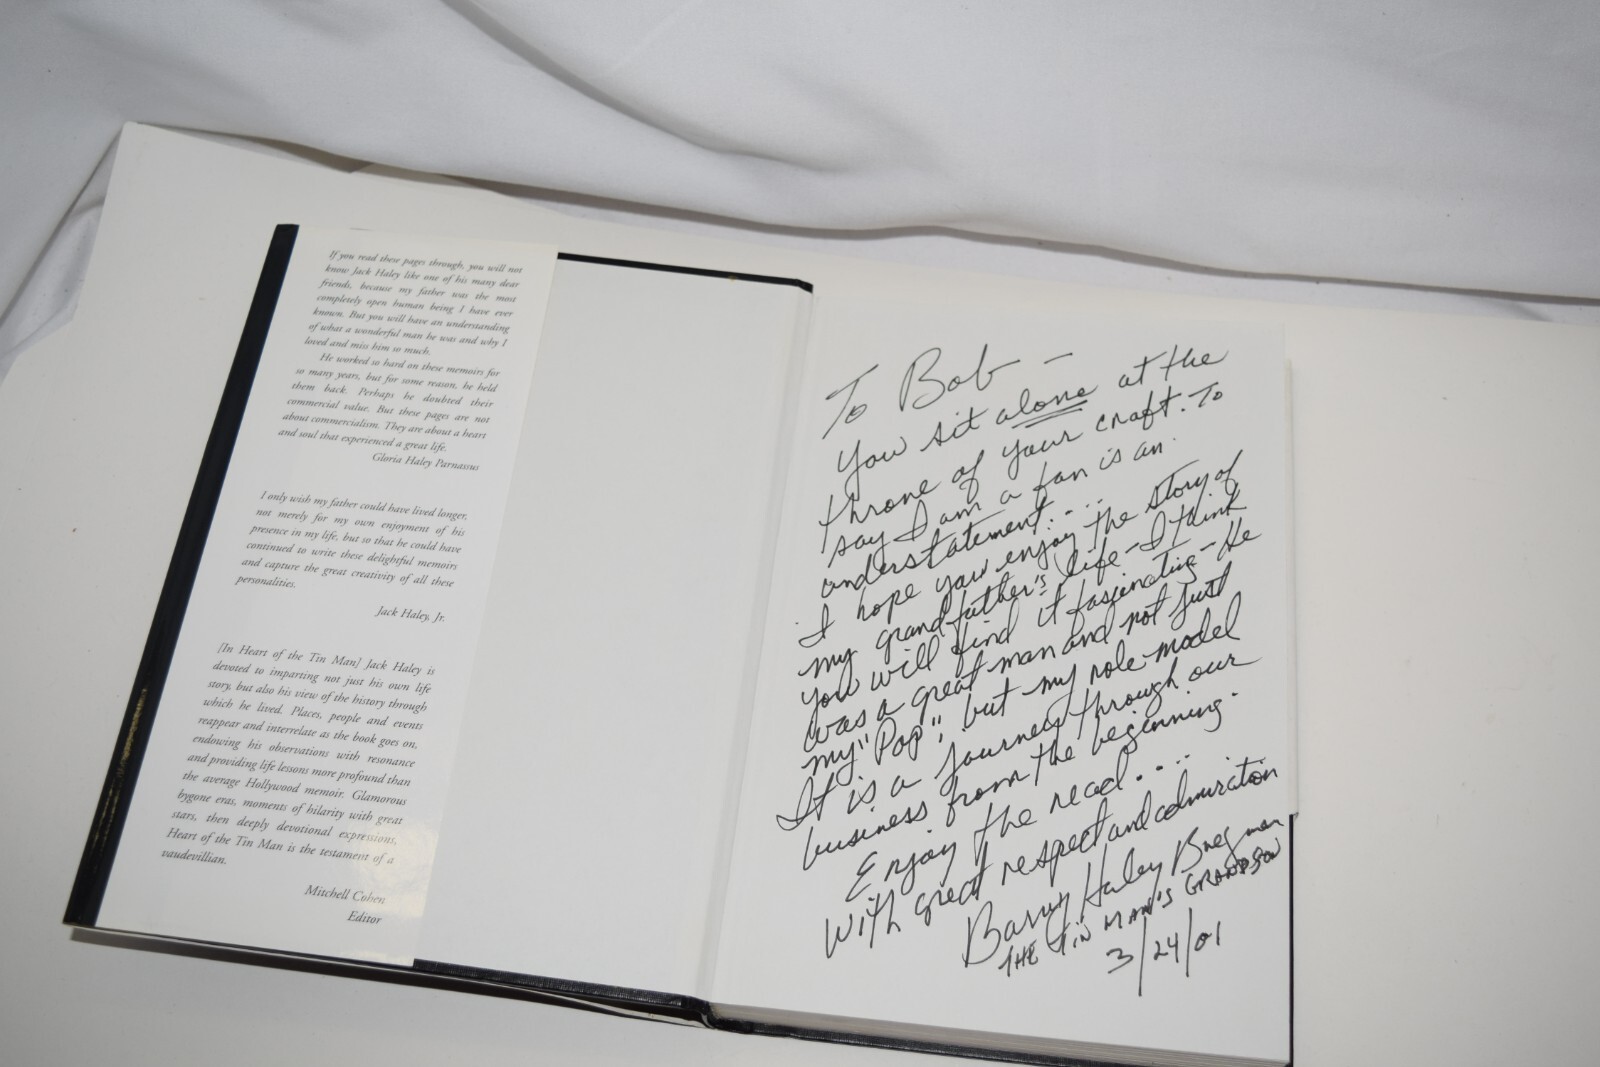 If you read these pages through, you will not
know Jack Haley like one of his many dear
friends, because my father was the most
completely open human being I have ever
known. But you will have an understanding
of what a wonderful man he was and why I
loved and miss him so much.
He worked so hard on these memoirs for
so many years, but for some reason, he held
them back. Perhaps he doubted their
commercial value. But these pages are not
about commercialism. They are about a heart
and soul that experienced a great life.
Gloria Haley Parnassus
I only wish my father could have lived longer,
not merely for my own enjoyment of his
presence in my life, but so that he could have
continued to write these delightful memoirs
and capture the great creativity of all these
personalities.
Jack Haley, Jr.
[In Heart of the Tin Man] Jack Haley is
devoted to imparting not just his own life
story, but also his view of the history through
which he lived. Places, people and events
reappear and interrelate as the book goes on,
endowing his observations with resonance
and providing life lessons more profound than
the average Hollywood memoir. Glamorous
bygone eras, moments of hilarity with great
stars, then deeply devotional expressions,
Heart of the Tin Man is the testament of a
vaudevillian.
Mitchell Cohen
Editor
To Bob –
You sit alone at the
throne of your craft. To
say I am a fan is an
understatement....
I hope you enjoy the story of
my grandfather's life – I think
you will find it fascinating – He
was a great man and not just
my "Pop", but my role model
It is a journey through our
business from the beginning.
Enjoy the read....
With great respect and admiration
Barry Haley Bregman
THE TIN MAN'S GRANDSON
3/24/01